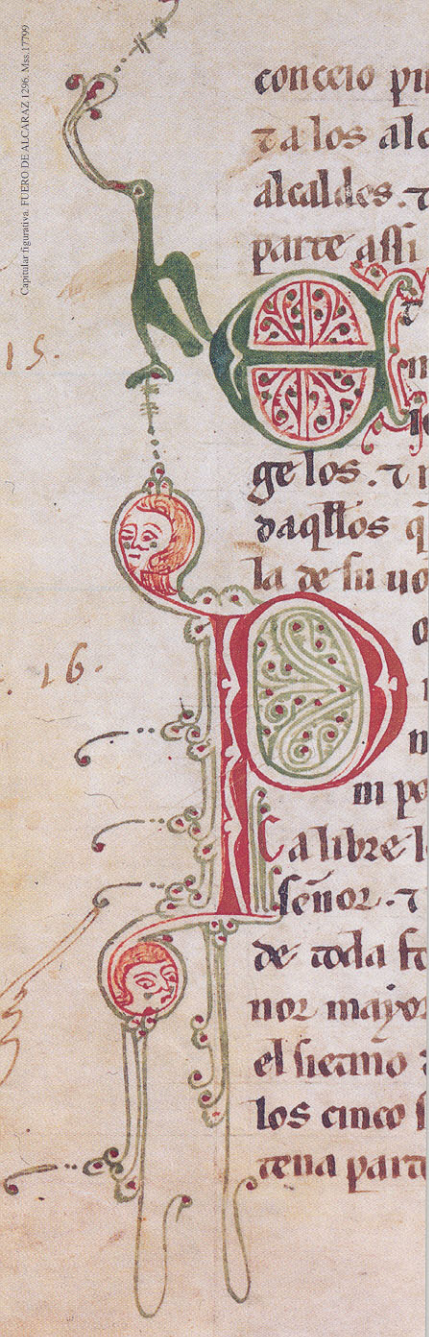 Capitular figurativa. FUERO DE ALCARAZ 1296. Mss.17799
conceio
τ a los alc
alcaldes. τ
parte assi
E
15.
ge los. τ
daqllos q
la de su uo
P
16.
m po
Ca libre l
señor. τ
de toda fo
nor mayor
el sietmo
los cinco s
tena parte